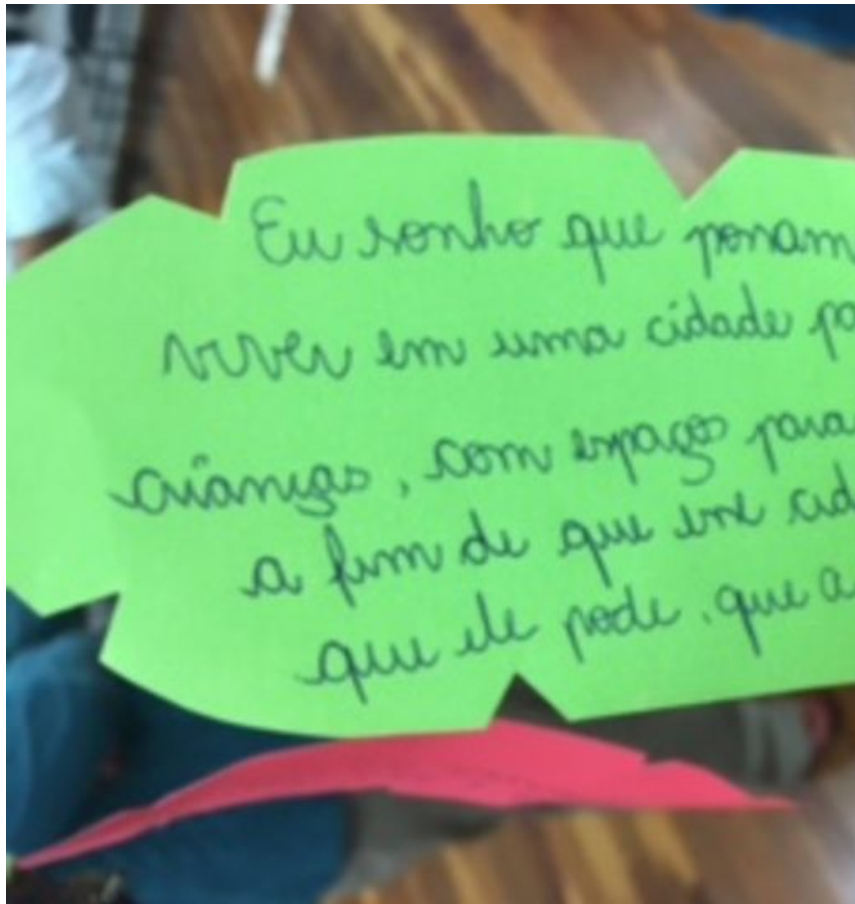 Eu sonho que possam
viver em uma cidade pa
crianças, com espaços para
a fim de que esse cid
que ele pode, que a